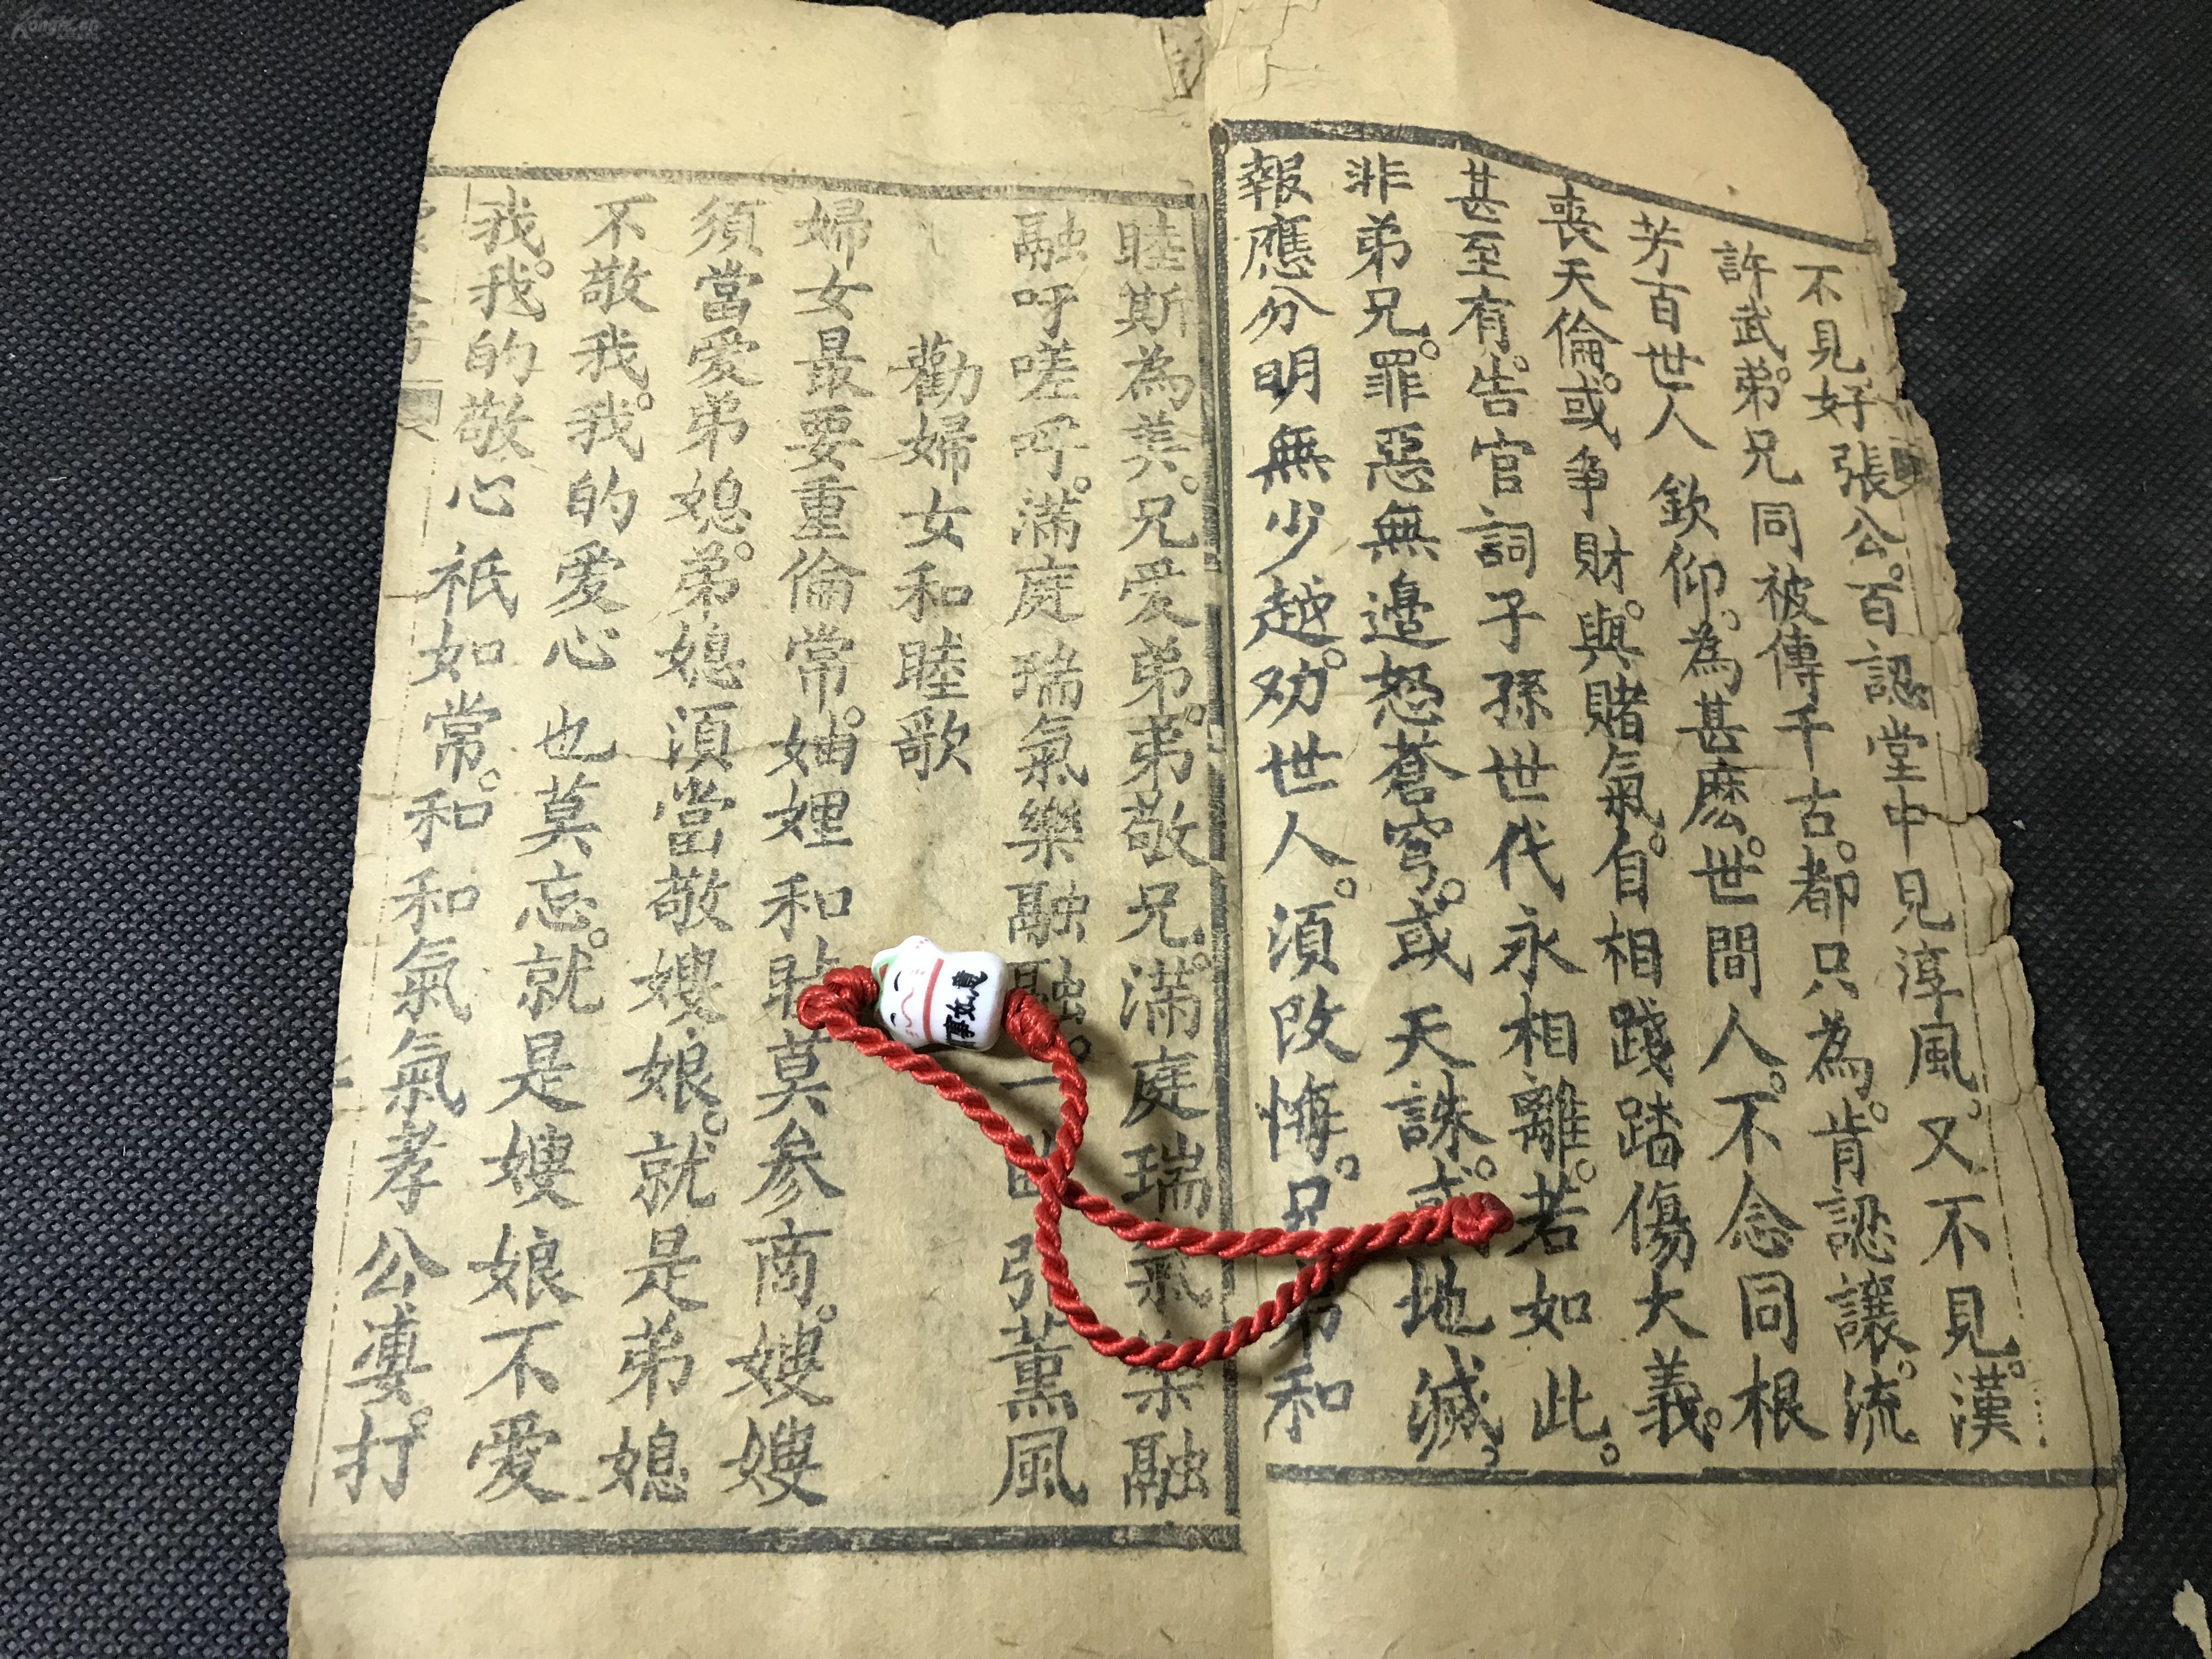 不見好張公。百認堂中見淳風。又不見。漢
許武。弟兄同被傳千古。都只為。肯認讓。流
芳百世人欽仰。為甚麽。世間人。不念同根
喪天倫。或爭財。與賭氣。自相踐踏傷大義。
甚至有。告官詞子孫世代永相離。若如此。
非弟兄。罪惡無邊怒蒼穹。或天誅。或地滅。
報應分明無少越。劝世人。須改悔。兄弟和
睦斯為美。兄愛弟。弟敬兄。滿庭瑞氣樂融
融吁嗟吁。滿庭瑞氣樂融融。一曲引薰風
勸婦女和睦歌
婦女最要重倫常。妯娌和睦莫参商。嫂嫂
須當愛弟媳。弟媳須當敬嫂娘。就是弟媳
不敬我。我的愛心也莫忘。就是嫂娘不愛
我。我的敬心祇如常。和和氣氣孝公婆。打
事如意